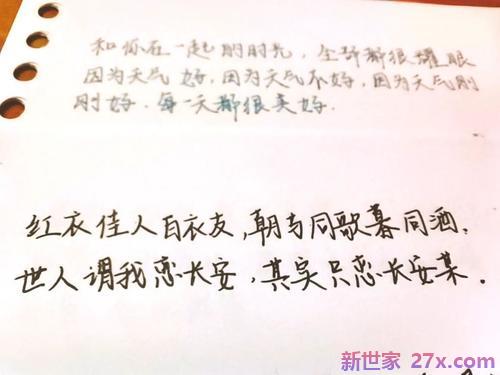 和你在一起的时光，全部都很耀眼
因为天气好，因为天气不好，因为天气刚
刚好．每一天都很美好．
红衣佳人白衣友，朝与同歌暮同酒，
世人谓我恋长安，其实只恋长安某．
新世家 27x.com